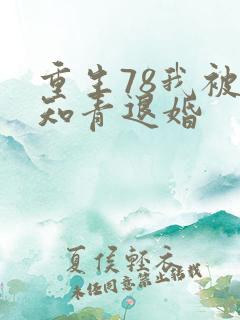 重生78我被
知青退婚
夏侯轻衣
未经同意禁止转载